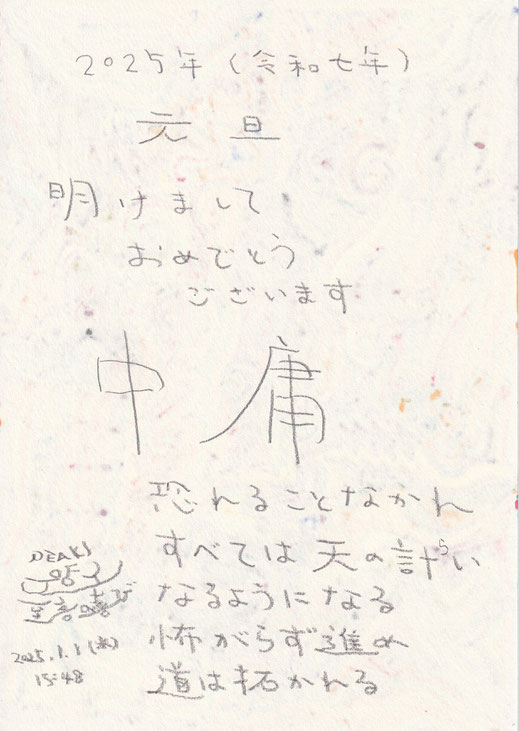 2025年(令和七年)
元旦
明けまして
おめでとう
ございます
中庸
恐れることなかれ
すべては天の計らい
なるようになる
怖がらず進め
道は拓かれる
2025.1.1(水)
15:48